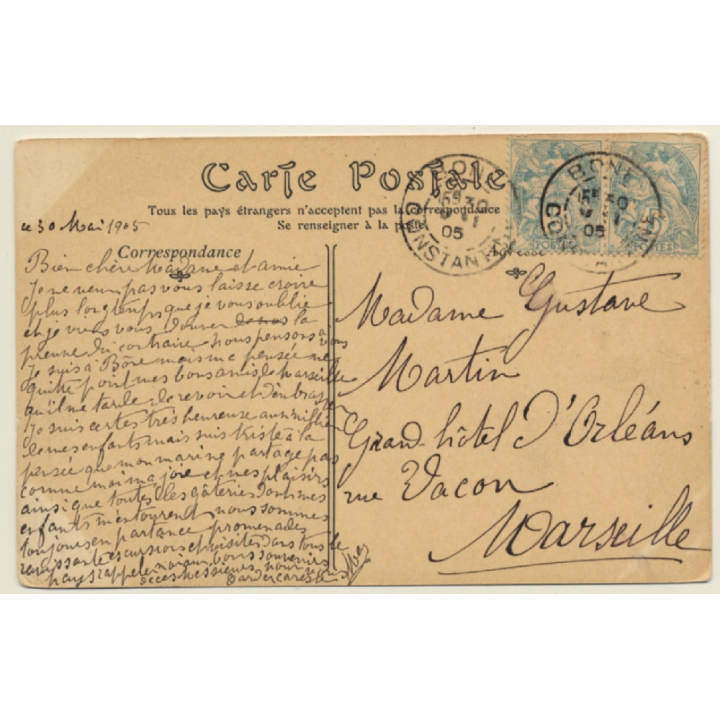 Carte Postale
Tous les pays étrangers n'acceptent pas la correspondance
Se renseigner à la poste
BONE
CONSTANTINE
30
05
BONE
30
05
POSTES
ce 30 Mai 1905
Correspondance
Adresse
Bien chère Madame et amie
Je ne veux pas vous laisse croire
plus longtemps que je vous oublie
et je veux vous donner la
preuve du contraire nous pensons à vous
Je suis à Bône mais ma pensée ne
quitte point mes bons amis de Marseille
qu'il me tarde de revoir et d'embrasser
Je suis certes très heureuse au milieu
de mes enfants mais suis triste à la
pensée que mon mari ne partage pas
comme moi ma joie et mes plaisirs
ainsi que toutes les gâteries dont mes
enfants m'entourent nous sommes
toujours en partance promenades
excursions et visites dans tous le
pays bons souvenirs
de ces messieurs pour
Madame Gustave
Martin
Grand hôtel D'Orléans
rue Vacon
Marseille